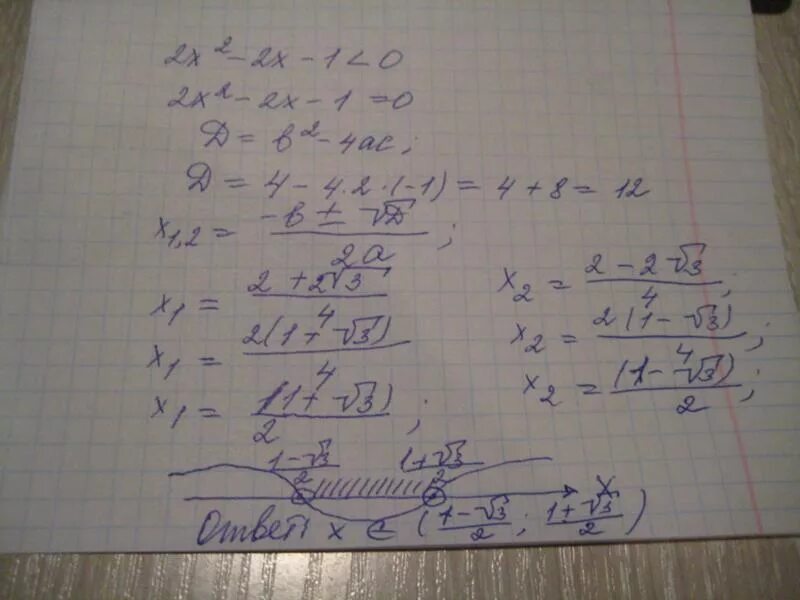 2x² - 2x - 1 < 0
2x² - 2x - 1 = 0
D = b² - 4ac;
D = 4 - 4·2·(-1) = 4 + 8 = 12
x₁,₂ = (-b ± √D)/2a;
x₁ = (2 + 2√3)/4
x₂ = (2 - 2√3)/4;
x₁ = 2(1 + √3)/4
x₂ = 2(1 - √3)/4;
x₁ = (1 + √3)/2;
x₂ = (1 - √3)/2;
(1 - √3)/2 (1 + √3)/2 x
Ответ: x ∈ ((1 - √3)/2; (1 + √3)/2)